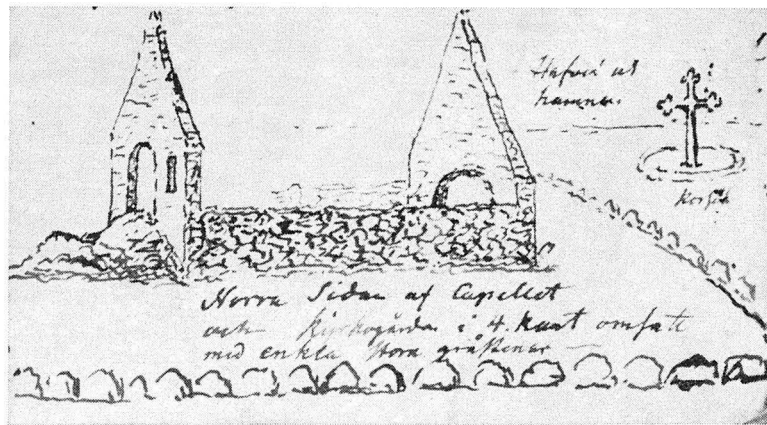 Hafvet ut
hamnen.
Korset
Norra Sidan af Capellet
och Kyrkogården i 4. Kant omfatt
med enkla stora gråstenar